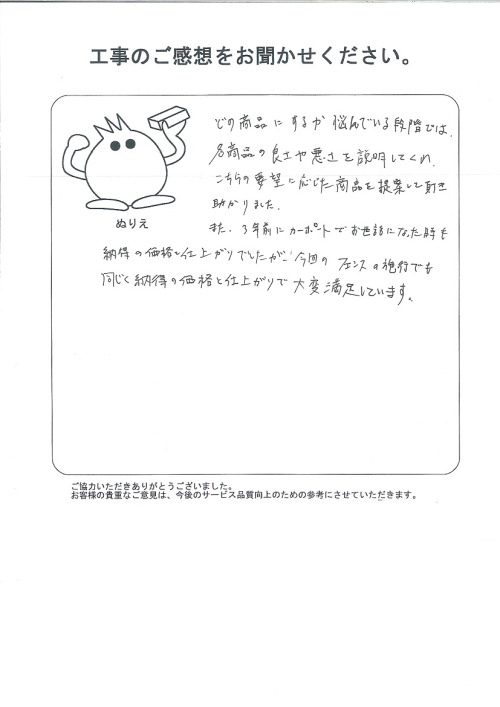 工事のご感想をお聞かせください。
どの商品にするか悩んでいる段階では、
各商品の良さや悪さを説明してくれ、
こちらの要望に応じた商品を提案して頂き
助かりました。
ぬりえ
また、3年前にカーポートでお世話になった時も
納得の価格と仕上がりでしたが、今回のフェンスの施行でも
同じく納得の価格と仕上がりで大変満足しています。
ご協力いただきありがとうございました。
お客様の貴重なご意見は、今後のサービス品質向上のための参考にさせていただきます。